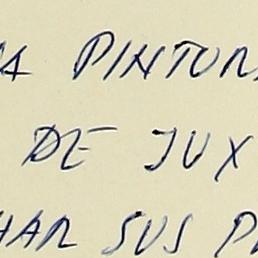 A PINTOR
DE JUX
HAR SUS P